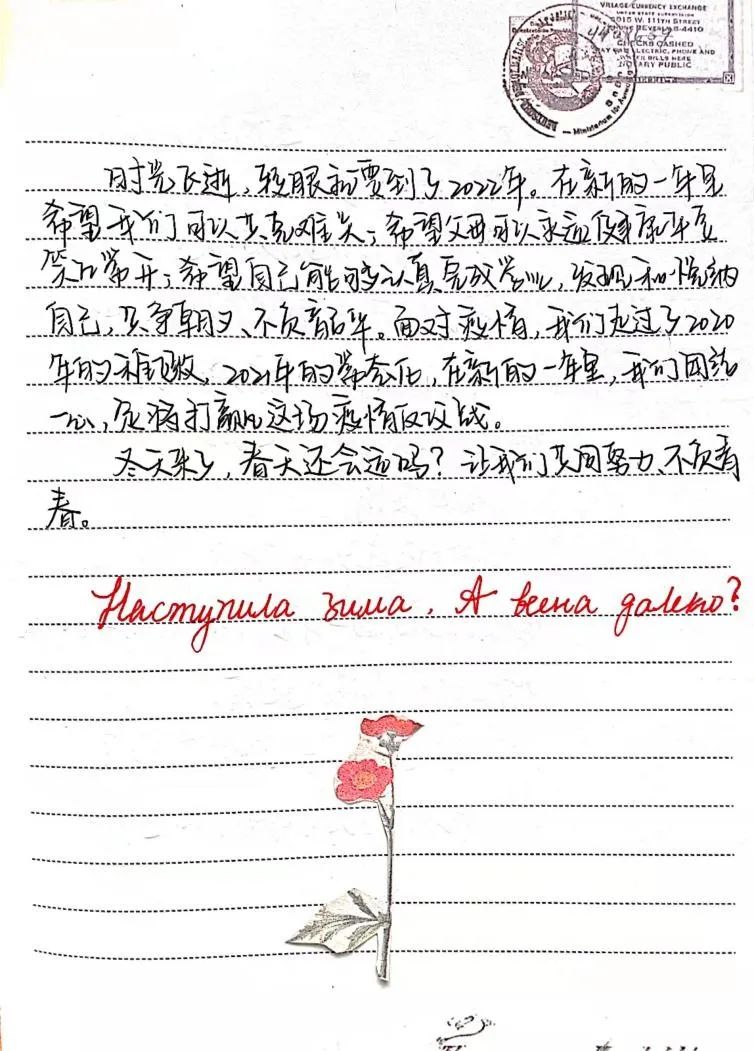 VILLAGE CURRENCY EXCHANGE
UNDER STATE SUPERVISION
2010 W. 111TH STREET
BEVERLY 8-4410
CHECKS CASHED
PAY ELECTRIC, PHONE AND
WATER BILLS HERE
NOTARY PUBLIC
时光飞逝，转眼就要到了2022年。在新的一年里
希望我们可以共克难关；希望父母可以永远健康平安
笑口常开；希望自己能够认真完成学业，发现和悦纳
自己，只争朝夕、不负韶华。面对疫情，我们走过了2020
年的艰难，2021年的常态化，在新的一年里，我们团结
一心，定将打赢这场疫情防疫战。
冬天来了，春天还会远吗？让我们共同努力、不负青
春。
Наступила зима. А весна далеко?